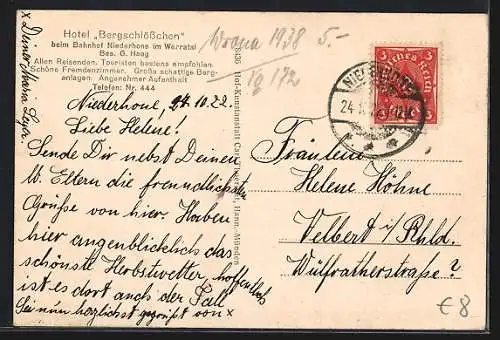 Hotel „Bergschlößchen“
beim Bahnhof Niederhone im Werratal
Bes. G. Haag
Allen Reisenden, Touristen bestens empfohlen
Schöne Fremdenzimmer. Große schattige Berg-
anlagen Angenehmer Aufenthalt
Telefon: Nr. 444
Niederhone, 24.10.22.
Liebe Helene!
Sende Dir nebst Deinen
lb. Eltern die freundlichsten
Grüsse von hier. Haben
hier augenblicklich das
schönste Herbstwetter, hoffentlich
ist es dort auch der Fall
Sei nun herzlichst gegrüßt von x
x Deiner Maria
1938 5.-
19172
Hof-Kunstanstalt Hann.-Münden
5 Reich 5
24
Fräulein
Helene Höhne
Velbert i/Rhld.
Wülfratherstraße?
€8